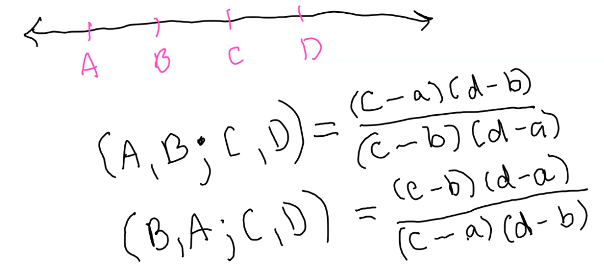 A B C D
(A,B;C,D) = (c-a)(d-b) / (c-b)(d-a)
(B,A;C,D) = (c-b)(d-a) / (c-a)(d-b)